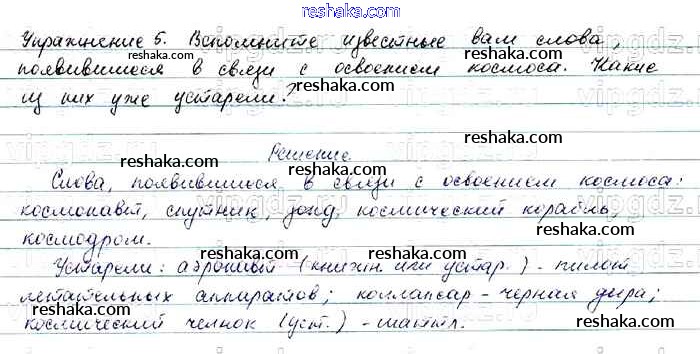 reshaka.com
Упражнение 5. Вспомните известные вам слова,
появившиеся в связи с освоением космоса. Какие
из них уже устарели?
reshaka.com
Решение
Слова, появившиеся в связи с освоением космоса:
космонавт, спутник, зонд, космический корабль,
космодром.
Устарели: аэронавт (книжн. или устар.) - пилот
летательных аппаратов; коллапсар - черная дыра;
космический челнок (уст.) - шаттл.
reshaka.com